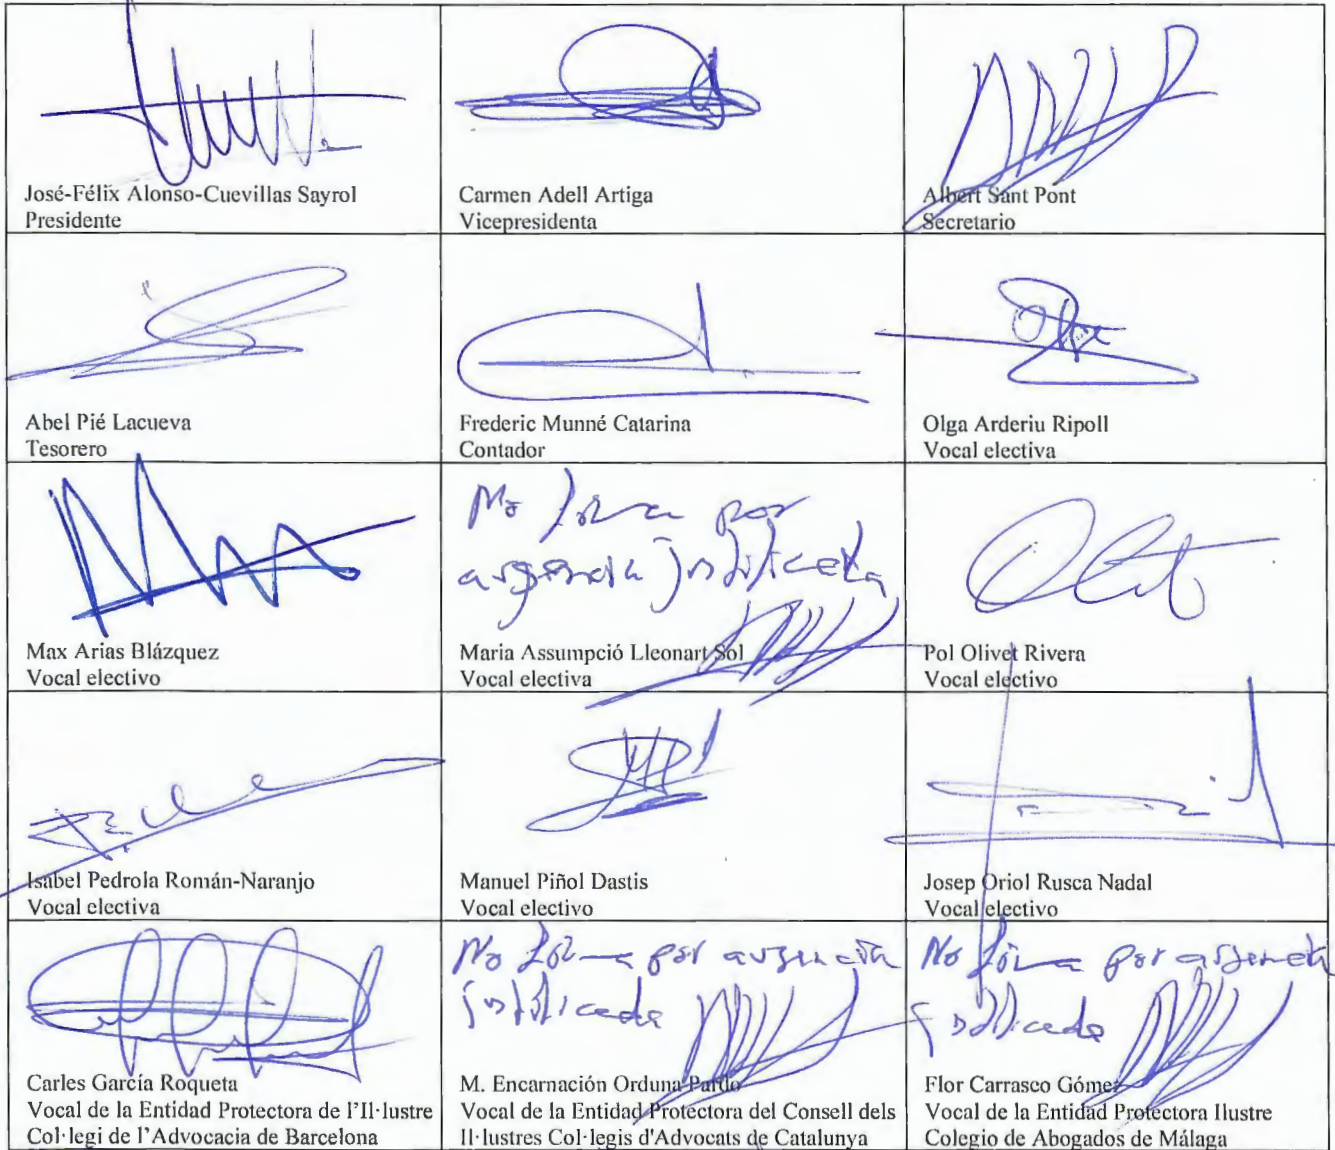 José-Félix Alonso-Cuevillas Sayrol
Presidente
Carmen Adell Artiga
Vicepresidenta
Albert Sant Pont
Secretario
Abel Pié Lacueva
Tesorero
Frederic Munné Catarina
Contador
Olga Arderiu Ripoll
Vocal electiva
Max Arias Blázquez
Vocal electivo
No firma por
ausencia justificada
Maria Assumpció Lleonart Sol
Vocal electiva
Pol Olivet Rivera
Vocal electivo
Isabel Pedrola Román-Naranjo
Vocal electiva
Manuel Piñol Dastis
Vocal electivo
Josep Oriol Rusca Nadal
Vocal electivo
Carles García Roqueta
Vocal de la Entidad Protectora de l'Il·lustre
Col·legi de l'Advocacia de Barcelona
No firma por ausencia
justificada
M. Encarnación Orduna Pardo
Vocal de la Entidad Protectora del Consell dels
Il·lustres Col·legis d'Advocats de Catalunya
No firma por ausencia
justificada
Flor Carrasco Gómez
Vocal de la Entidad Protectora Ilustre
Colegio de Abogados de Málaga